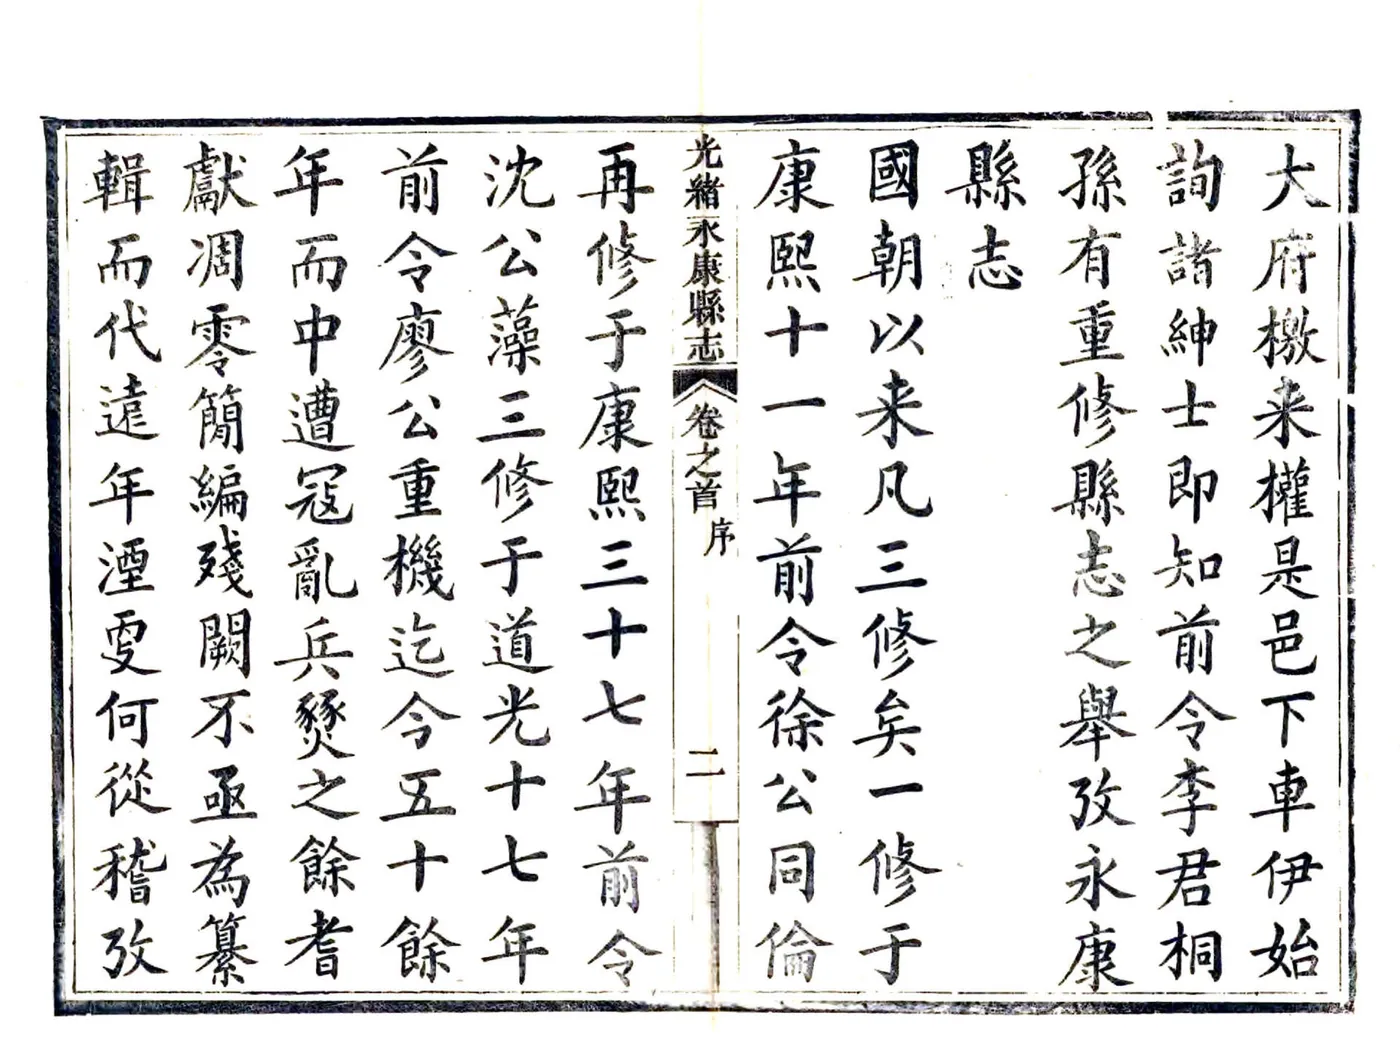 大府檄来權是邑下車伊始
詢諸紳士即知前令李君桐
孫有重修縣志之舉攷永康
縣志
國朝以来凡三修矣一修于
康熙十一年前令徐公同倫
光緒永康縣志 卷之首 序 二
再修于康熙三十七年前令
沈公藻三修于道光十七年
前令廖公重機迄今五十餘
年而中遭寇亂兵燹之餘耆
獻凋零簡編殘闕不亟為纂
輯而代遠年湮叓何從稽攷